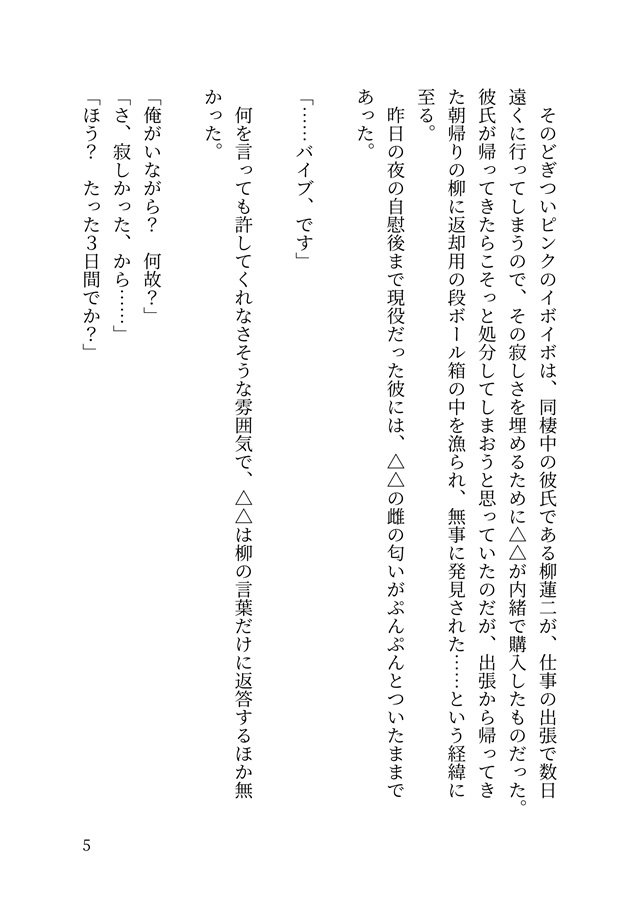 そのどぎついピンクのイボイボは、同棲中の彼氏である柳蓮二が、仕事の出張で数日
遠くに行ってしまうので、その寂しさを埋めるために△△が内緒で購入したものだった。
彼氏が帰ってきたらこそっと処分してしまおうと思っていたのだが、出張から帰ってき
た朝帰りの柳に返却用の段ボール箱の中を漁られ、無事に発見された……という経緯に
至る。
昨日の夜の自慰後まで現役だった彼には、△△の雌の匂いがぷんぷんとついたままで
あった。
「……バイブ、です」
何を言っても許してくれなさそうな雰囲気で、△△は柳の言葉だけに返答するほか無
かった。
「俺がいながら？　何故？」
「さ、寂しかった、から……」
「ほう？　たった３日間でか？」
5